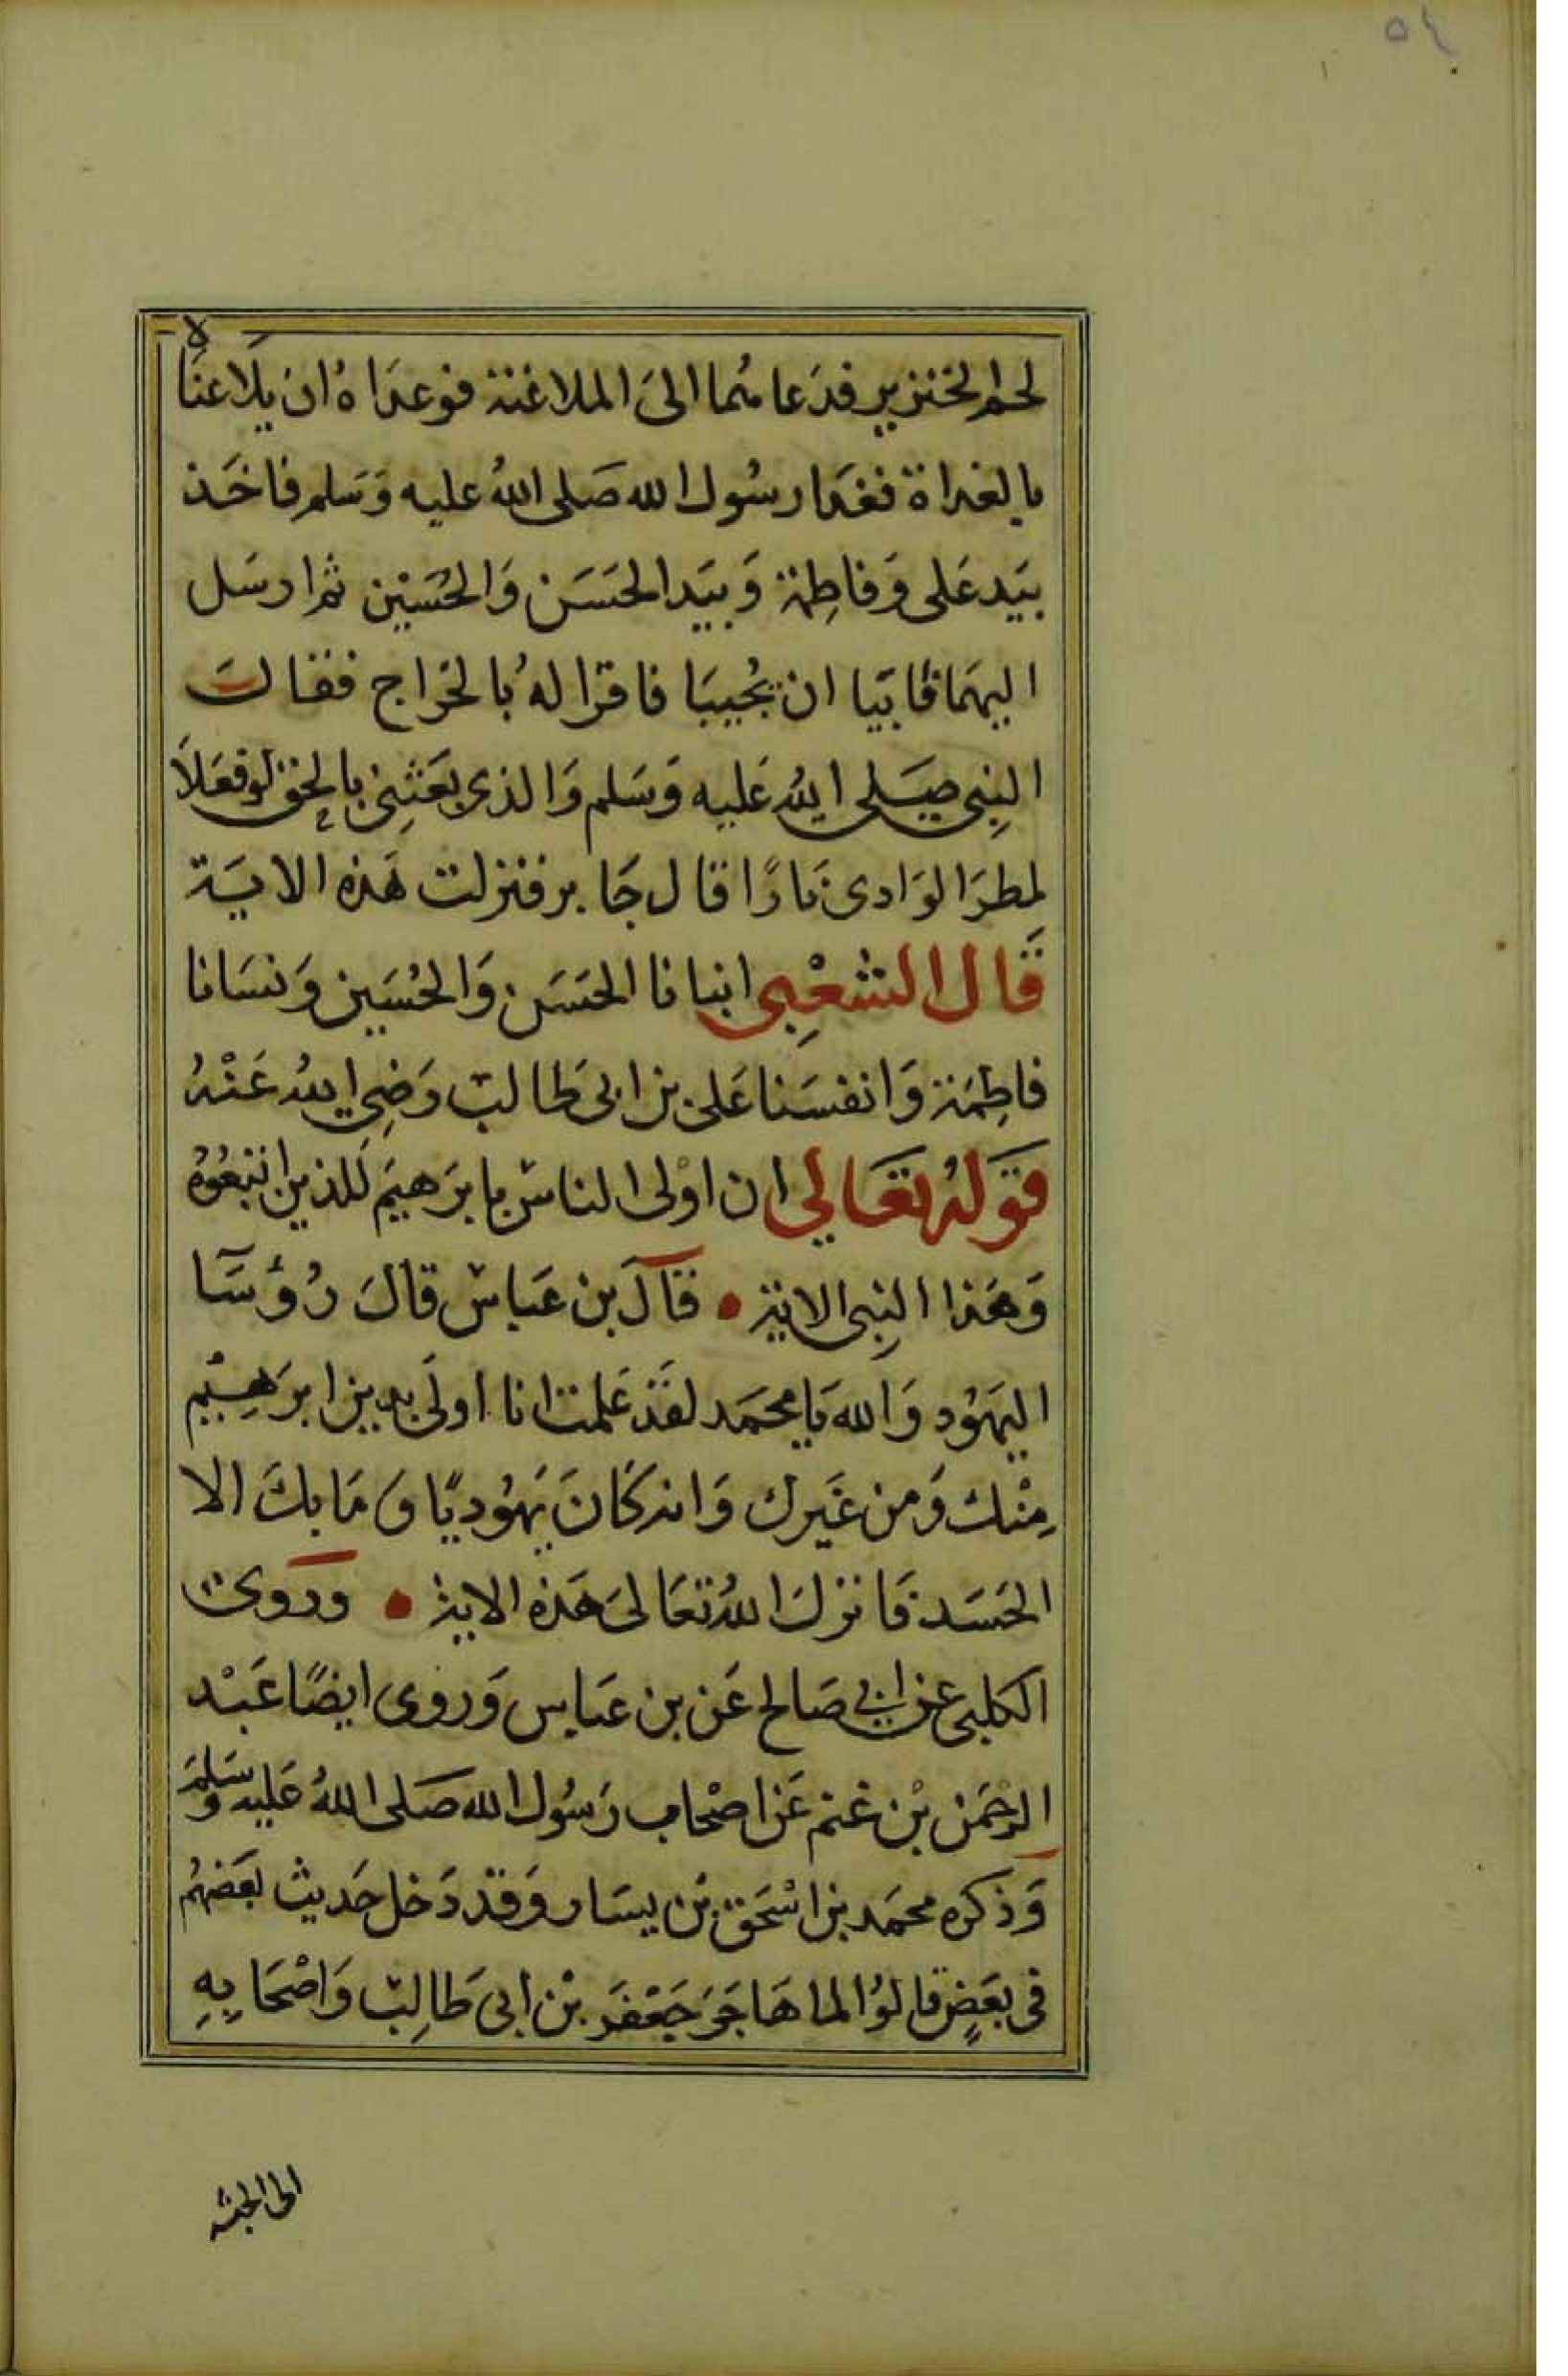 ٥٤
لحم الخنزير فدعاهما الى الملاعنة فوعداه ان يلاعناه
بالغداة فغدا رسول الله صَلى اللهُ عليه وَسَلم فاخَذ
بيَد عَلى وَفاطِمة وَبيَد الحَسَن وَالحُسَيْن ثم ارسَل
اليهمَا فابَيا ان يجُيبَا فاقرا لهُ بالخَراج فقالَ
النبِى صَلى اللهُ عَليه وَسَلم وَالذى بعَثنِى بالحق لو فعَلاَ
لمطرَ الوَادى نَارًا قال جَابر فنزلت هَذه الايَة
قَال الشعْبِى ابنانا الحَسَن وَالحُسَين وَنسَانا
فاطِمَة وَانفسَنا عَلى بن ابى طَالب رَضِى اللهُ عَنْهُ
قوَلهُ تعَالى ان اوْلى الناس بابرَهيَم لَلذين اتبعُوُه
وَهَذا النبِى الاية • قال بن عَباس قالَ رُؤسَآ
اليهَوُد وَالله يَا محمَد لقَد عَلمت انا اولىَ بدين ابرَهِيْم
مِنْك وَمن غَيرك وَانه كَانَ يَهوُديًا وَ مَا بكَ الا
الحَسَد فَانزلَ اللهُ تعَالىَ هَذه الاية • وروىَ
الكلبى عن ابى صَالح عَن بن عَباس وَروى ايضًا عَبْد
الرحمَن بْن غنم عَن اصْحاب رَسُول الله صَلى اللهُ عَليه وسَلمَ
وَذكره محمَد بن اسْحَق بن يسَار وَقد دَخل حَديث بعَضهُم
فى بعَضٍ قالوُا لما هَاجَرَ جَعْفَر بْن ابى طَالِب وَاصْحَابِهِ
الى الحبشه